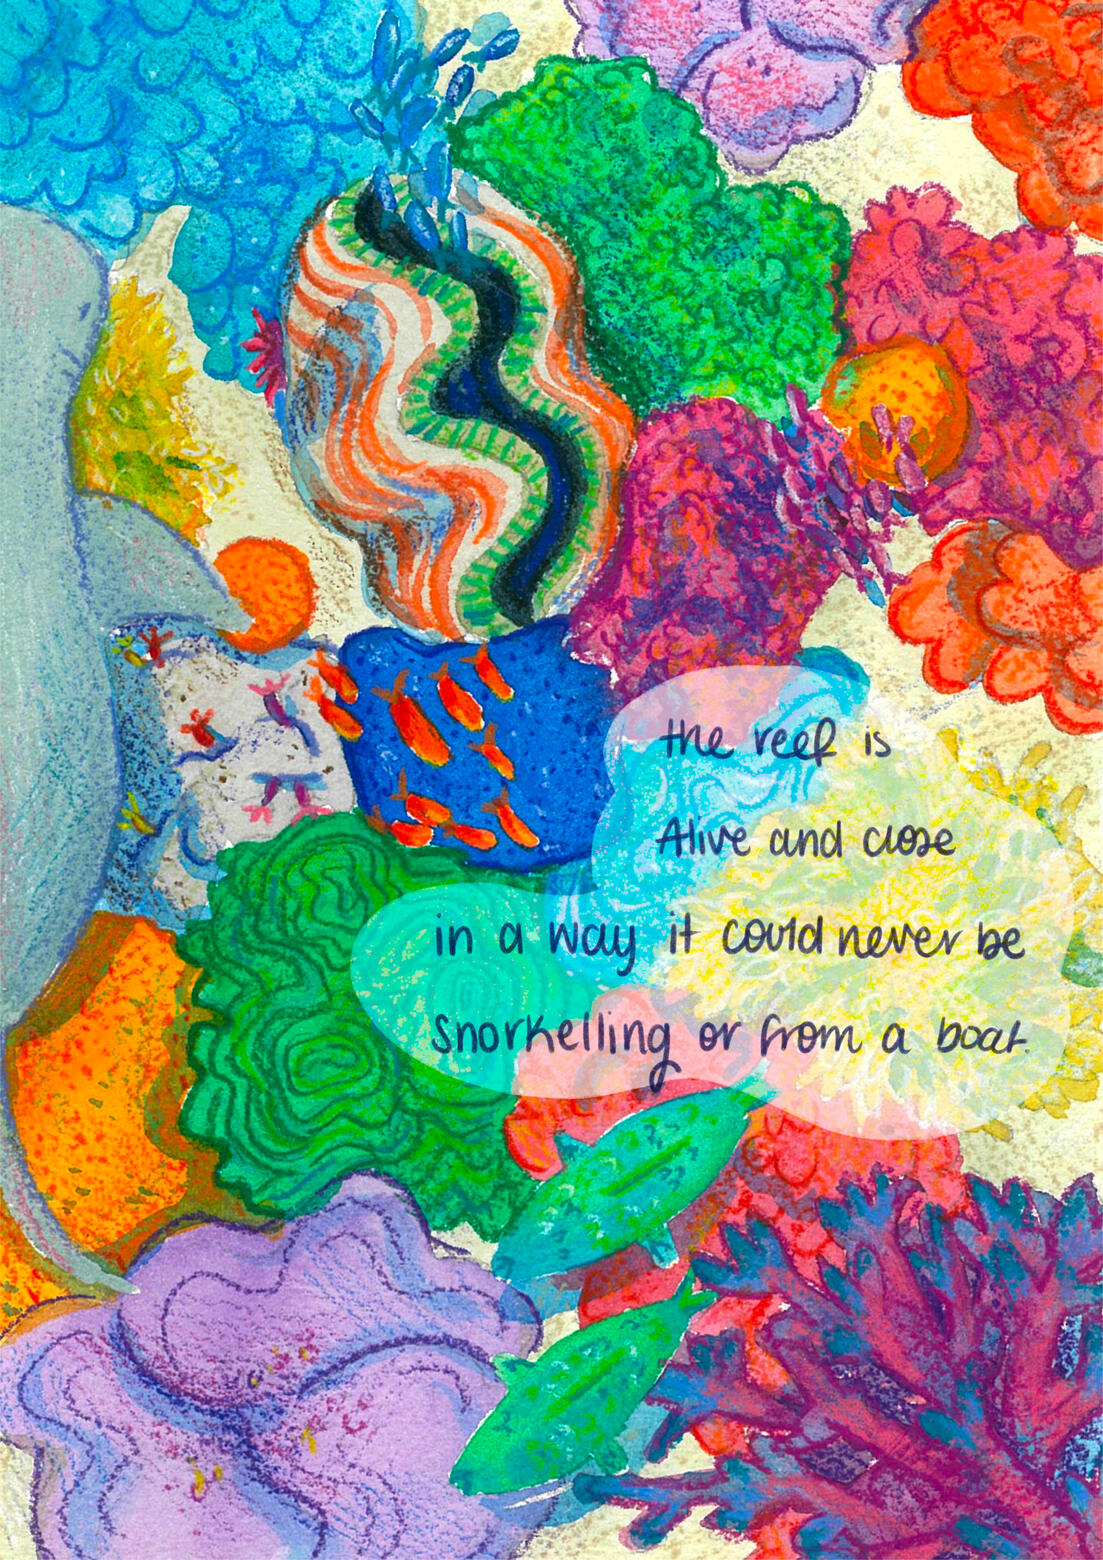 the reef is
Alive and close
in a way it could never be
Snorkelling or from a boat.